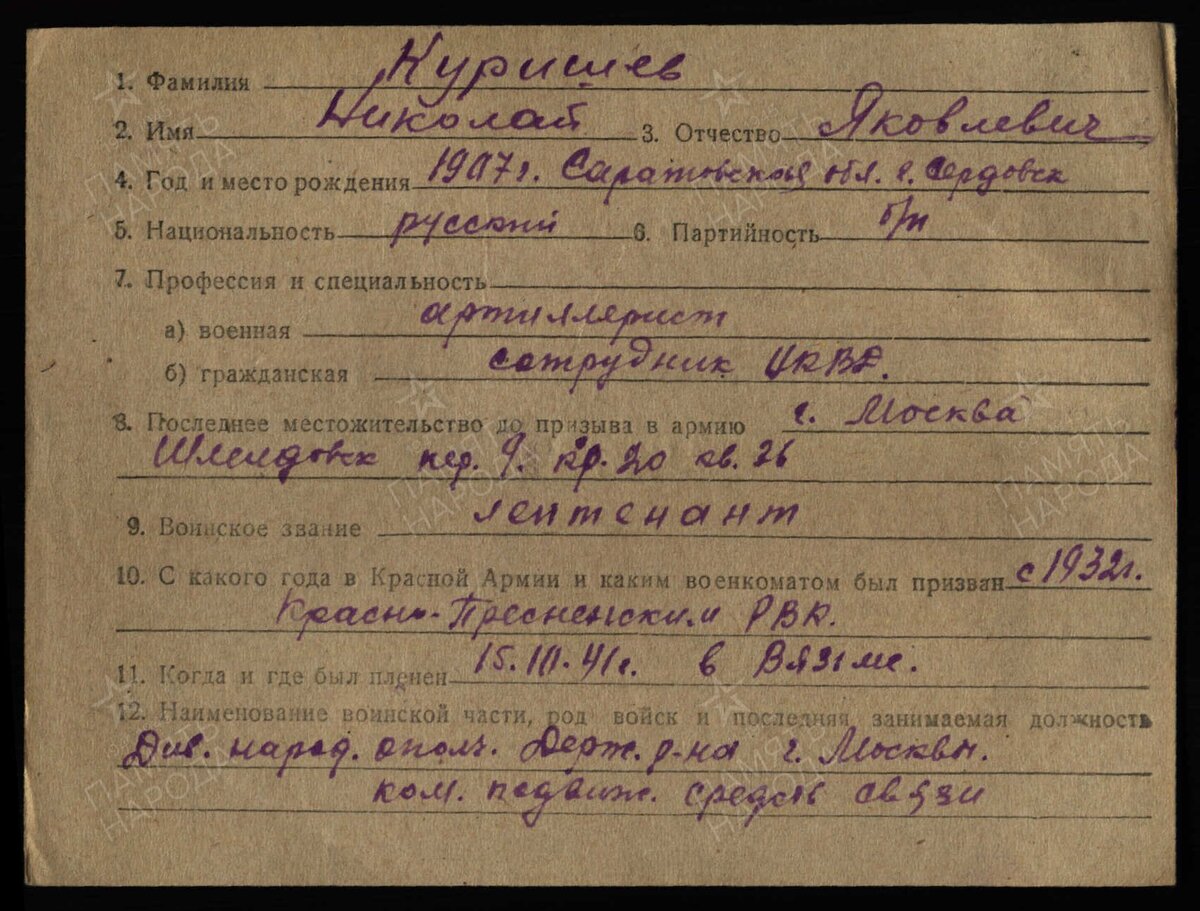 1. Фамилия Куришев
2. Имя Николай 3. Отчество Яковлевич
4. Год и место рождения 1907г. Саратовская обл. г. Сердовск
5. Национальность русский 6. Партийность б/п
7. Профессия и специальность
а) военная артиллерист
б) гражданская сотрудник НКВД.
8. Последнее местожительство до призыва в армию г. Москва
пер. 9. кр. 20 кв. 26
9. Воинское звание лейтенант
10. С какого года в Красной Армии и каким военкоматом был призван с 1932г.
Красно-Пресненским РВК.
11. Когда и где был пленен 15.III.41г. в Вязьме.
12. Наименование воинской части, род войск и последняя занимаемая должность
Див. народ. ополч. Держ. р-на г. Москвы.
ком. подвиж. средств связи
ПАМЯТЬ НАРОДА
ПАМЯТЬ НАРОДА
ПАМЯТЬ НАРОДА
ПАМЯТЬ НАРОДА
ПАМЯТЬ НАРОДА
ПАМЯТЬ НАРОДА